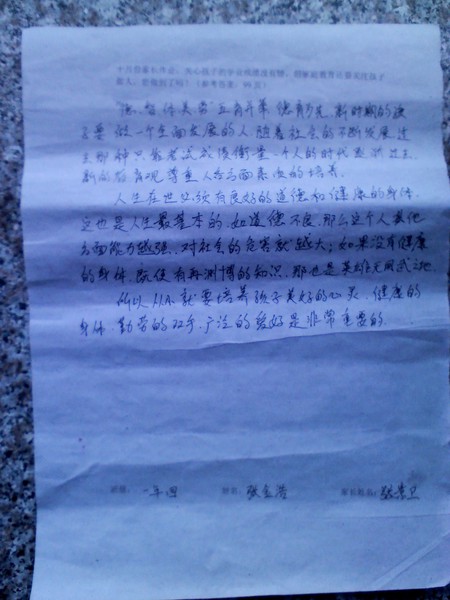 十月份家长作业：关心孩子的学业成绩没有错，但家庭教育还需关注孩子
做人，你做到了吗？（参考答案：99页）
德、智、体、美、劳五育并举，德育为先，新时期的孩
子要做一个全面发展的人，随着社会的不断发展，过
去那种只靠考试成绩衡量一个人的时代已渐过去，
新的教育观尊重人各方面素质的培养。
人生在世必须有良好的道德和健康的身体，
这也是人生最基本的，如道德不良，那么这个人其他
方面能力越强，对社会的危害就越大；如果没有健康
的身体，既使有再渊博的知识，那也是英雄无用武之地。
所以从小就要培养孩子美好的心灵、健康的
身体、勤劳的双手、广泛的爱好是非常重要的。
班级：一年四 姓名：张金浩 家长姓名：张崇卫